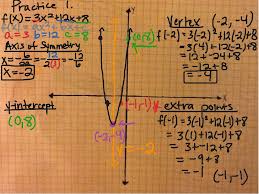 Practice 1.
f(x) = 3x²+12x+8
a=3 b=12 c=8
Axis of Symmetry
x=-2
y-intercept
(0,8)
(0,8)
(-1,-1)
(-2,-4)
x=-2
Vertex (-2,-4)
f(-2)=3(-2)²+12(-2)+8
=3(4)+12(-2)+8
=12+-24+8
=-12+8
=-4
extra points
f(-1)=3(-1)²+12(-1)+8
=3(1)+12(-1)+8
=3+-12+8
=-9+8
=-1 (-1,-1)